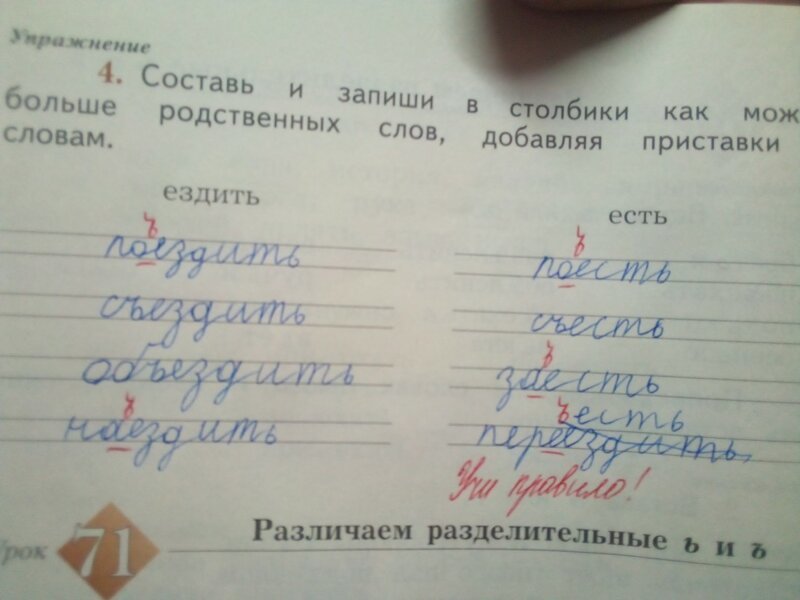 Упражнение
4. Составь и запиши в столбики как мож
больше родственных слов, добавляя приставки
словам.
ездить
есть
ъ
поездить
съездить
объездить
ъ
наездить
ъ
поесть
съесть
ъ
заесть
ъ есть
переездить,
Учи правило!
урок 71
Различаем разделительные ь и ъ